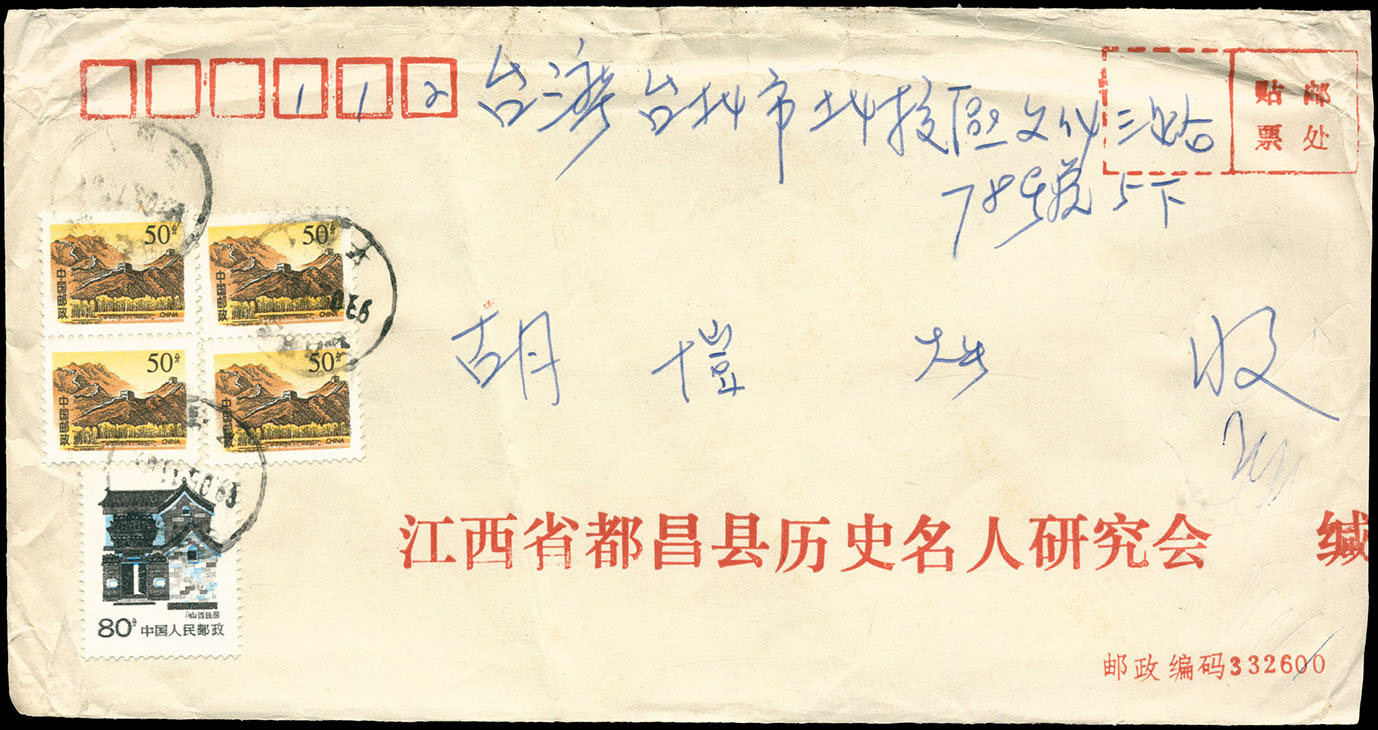 112
台灣台北市北投區文化三路
78號5下
贴邮
票处
胡 愷 收
50分
中国邮政
CHINA
50分
中国邮政
CHINA
50分
中国邮政
CHINA
50分
中国邮政
CHINA
山西民居
80分 中国人民邮政
江西省都昌县历史名人研究会 缄
邮政编码332600